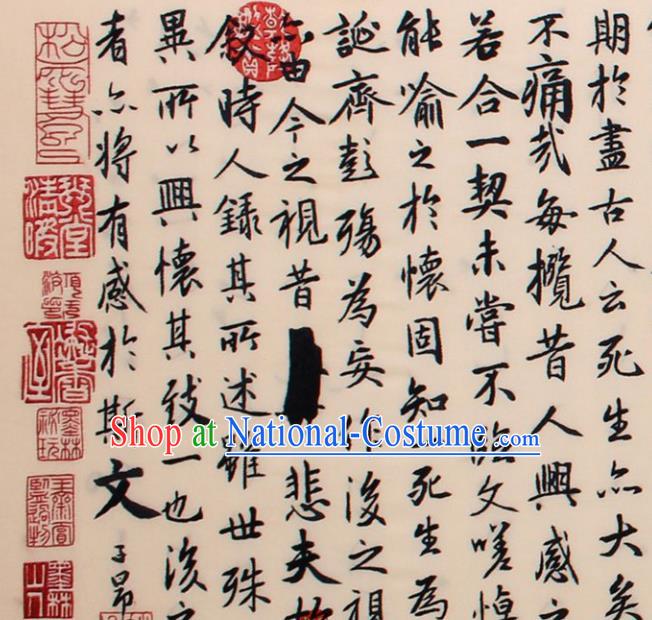 期於盡古人云死生亦大矣
不痛哉每攬昔人興感之
若合一契未嘗不臨文嗟悼
能喻之於懷固知死生為
誕齊彭殤為妄作後之視
由今之視昔悲夫故
敘時人錄其所述雖世殊
異所以興懷其致一也後之
者亦將有感於斯文
子昂
墨林秘玩
墨林
Shop at National-Costume.com